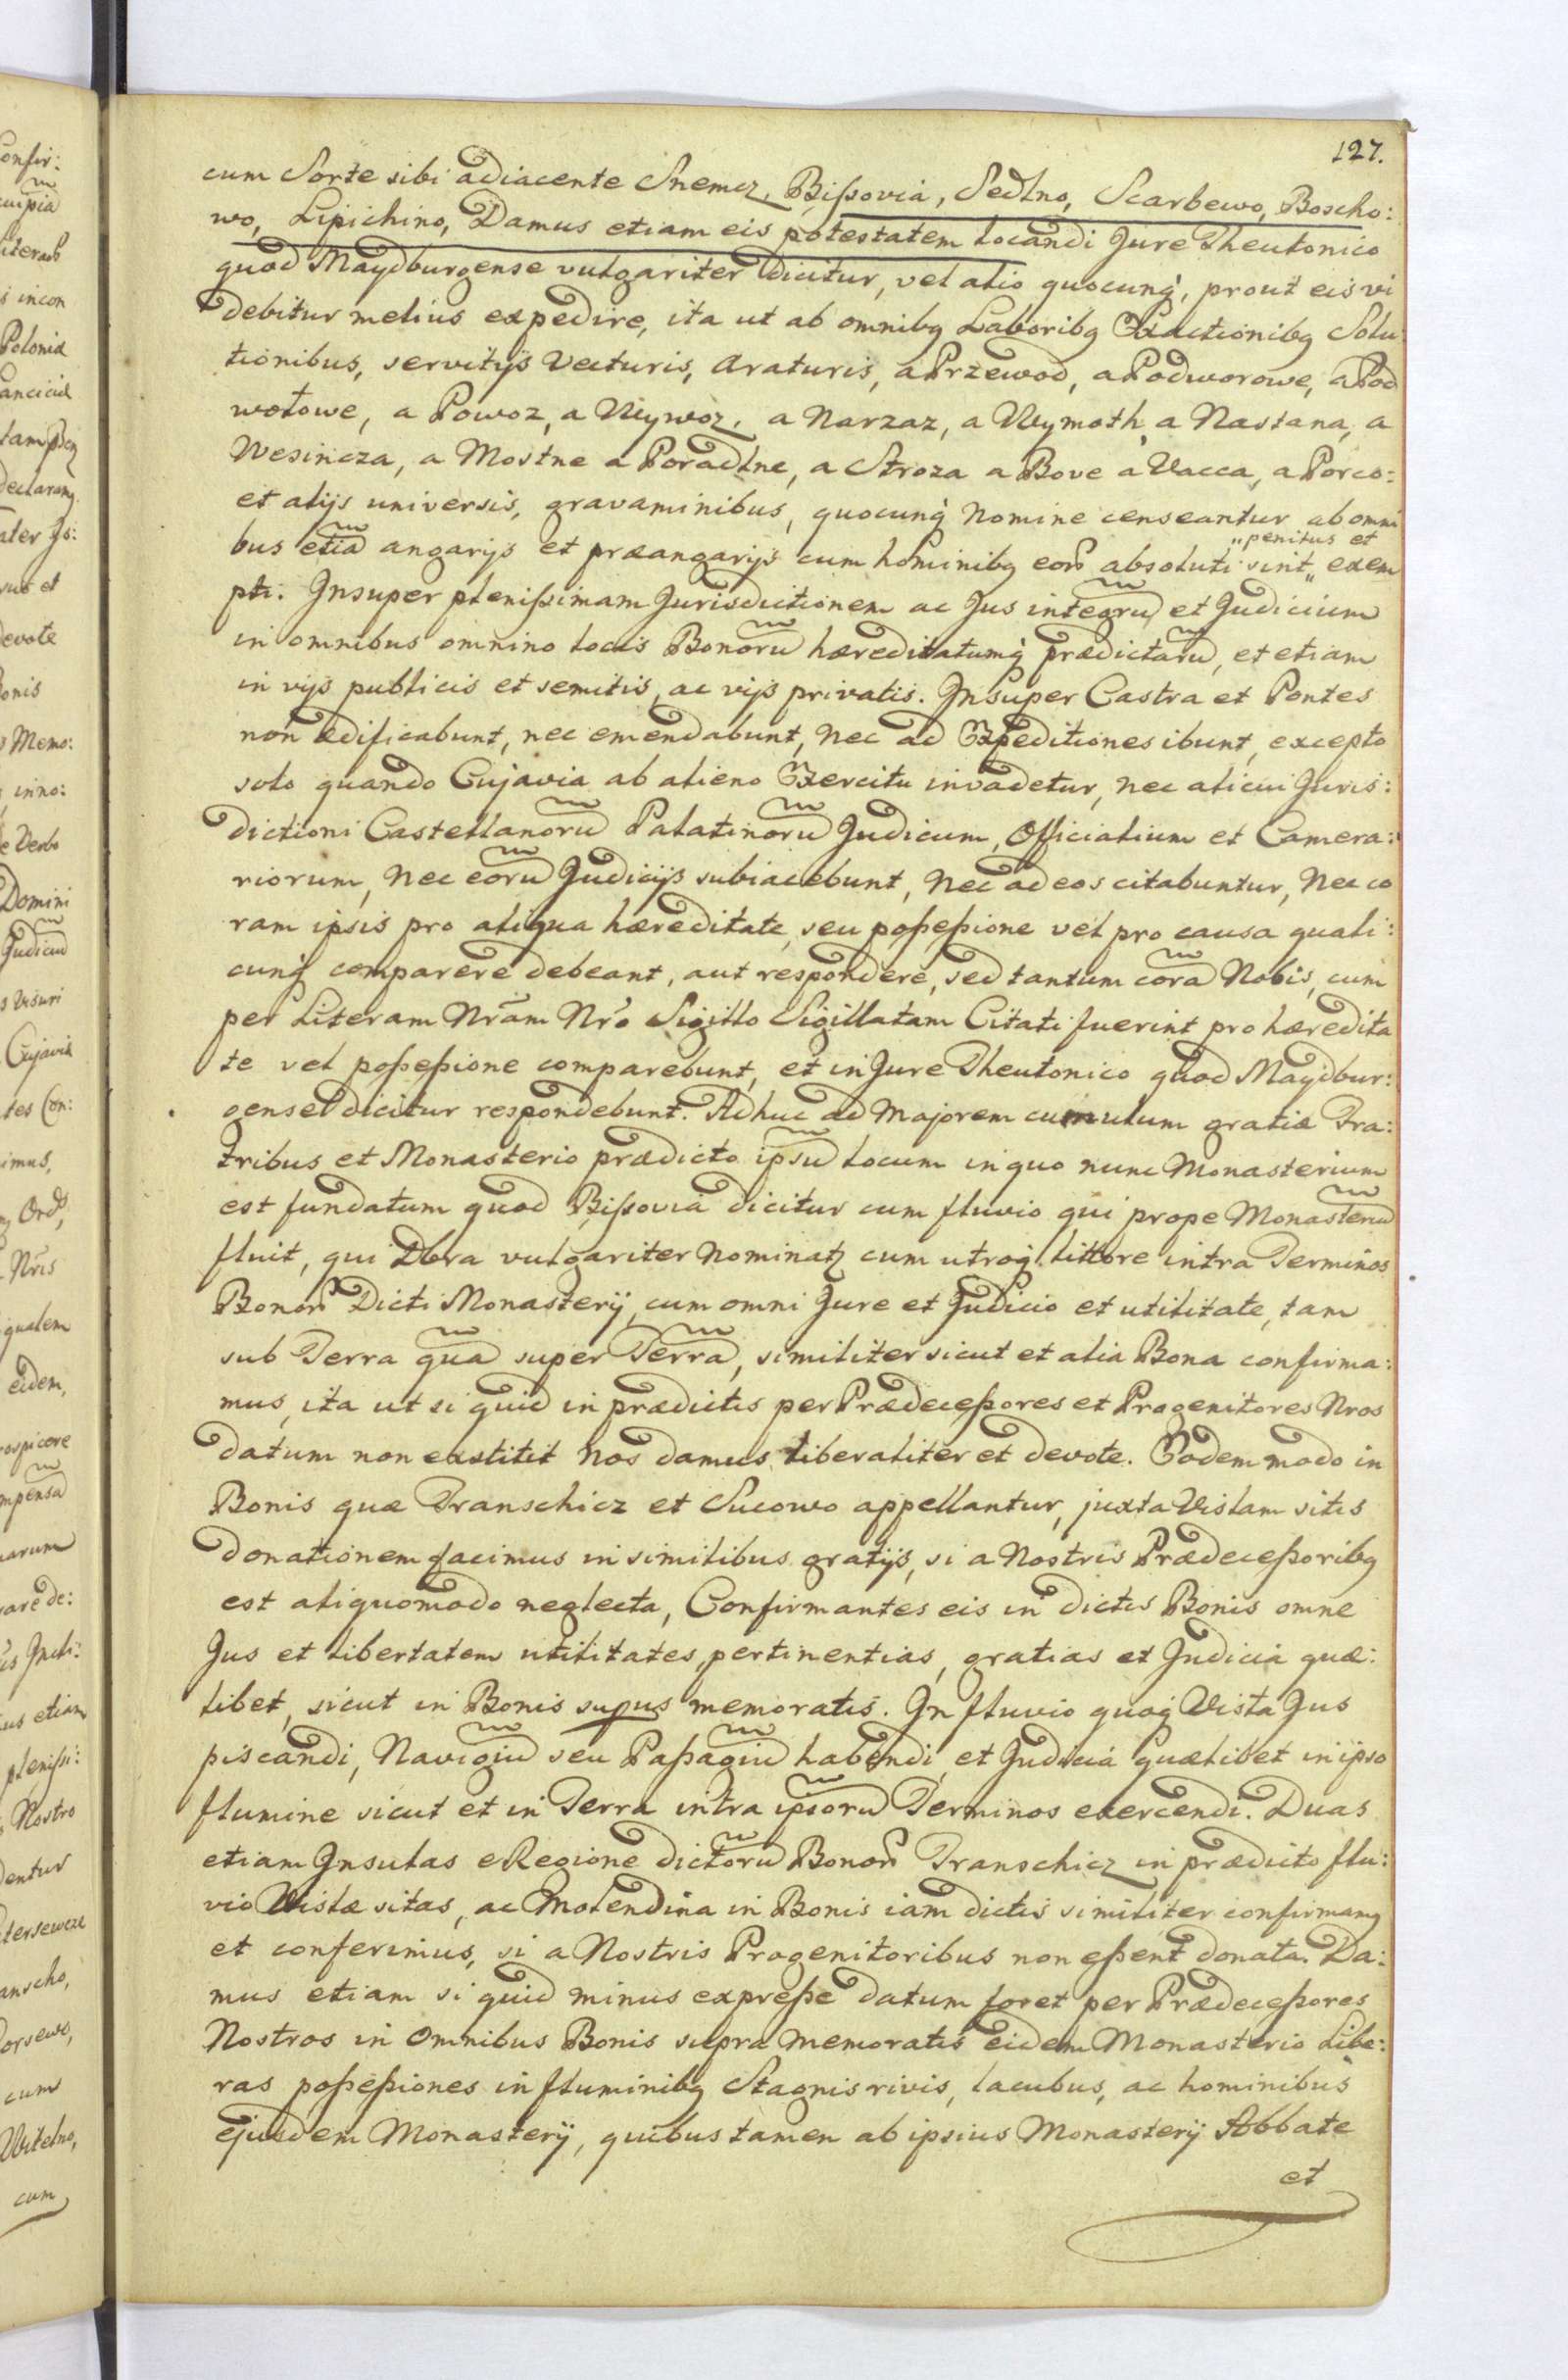 127.
cum Sorte sibi adiacente Snemcz, Bißovia, Sedlno, Scarbewo, Boscho:
wo, Lipichino, Damus etiam eis potestatem locandi Jure Theutonico
quod Maydburgense vulgariter dicitur, vel alio quocunq, prout eis vi
debitur melius expedire, ita ut ab omnibq Laboribq Exactionibq Solu
tionibus, servitijs Vecturis, araturis, a Przewod, a Podworowe, a Pod
wołowe, a Powoz, a Wywoz, a Narzaz, a Wymoth, a Nastana, a
Wesincza, a Mostne a Poradlne, a Stroza a Bove a Vacca, a Porco:
et alijs universis, gravaminibus, quocunq Nomine censeantur ab omni
bus etiã angarijs et præangarijs cum hominibq eorũ absoluti sint „penitus et„ exem
pti. Insuper plenißimam Jurisdictionem ac Jus integrũ et Judicium
in omnibus omnino locis Bonorũ hæreditatumq prædictarũ, et etiam
in vijs publicis et semitis, ac vijs privatis. Insuper Castra et Pontes
non ædificabunt, nec emendabunt, Nec ad Expeditiones ibunt, excepto
solo quando Cujavia ab alieno Exercitu invadetur, nec alicui Juris:
dictioni Castellanorũ Palatinorũ Judicum, Officialium et Camera:
riorum, Nec eorũ Judicijs subiacebunt, Nec ad eos citabuntur, Nec co
ram ipsis pro aliqua hæreditate, seu poßeßione vel pro causa quali:
cunq comparere debeant, aut respondere, sed tantum corã Nobis, cum
per Literam Nrãm Nr̃o Sigillo Sigillatam Citati fuerint pro hæredita
te vel poßeßione comparebunt, et in Jure Theutonico quod Maydbur:
gense dicitur respondebunt. Adhuc ad Majorem cumulum gratiæ Fra:
tribus et Monasterio prædicto ipsũ locum in quo nunc Monasterium
est fundatum quod Bißovia dicitur cum fluvio qui prope Monasteriũ
fluit, qui Dbra vulgariter Nominatz cum utroq littore intra Terminos
Bonorũ Dicti Monasterij, cum omni Jure et Judicio et utilitate, tam
sub Terra quã super Terrã, similiter sicut et alia Bona confirma:
mus, ita ut si quid in prædictis per Prædeceßores et Progenitores Nros
datum non exstitit Nos damus liberaliter et devote. Eodem modo in
Bonis quæ Transchicz et Sucowo appellantur, juxta Vislam sitis
donationem facimus in similibus gratijs, si a Nostris Prædeceßoribq
est aliquomodo neglecta, Confirmantes eis in dictis Bonis omne
Jus et libertatem utilitates, pertinentias, gratias et Judicia quæ:
libet, sicut in Bonis supus memoratis. In fluvio quoq Visla Jus
piscandi, Navigiũ seu Paßagiũ habendi, et Judicia quælibet in ipso
flumine sicut et in Terra intra ipsorũ Terminos exercendi. Duas
etiam Insulas e Regione dictorũ Bonorũ Transchicz in prædicto flu:
vio Vislæ sitas, ac Molendina in Bonis iam dictis similiter confirmamq
et conferimus, si a Nostris Progenitoribus non eßent donata. Da:
mus etiam si quid minus expreße datum foret per Prædeceßores
Nostros in Omnibus Bonis supra Memoratis eidem Monasterio Libe:
ras poßeßiones in fluminibq Stagnis rivis, lacubus, ac hominibus
ejusdem Monasterij, quibus tamen ab ipsius Monasterij Abbate
et